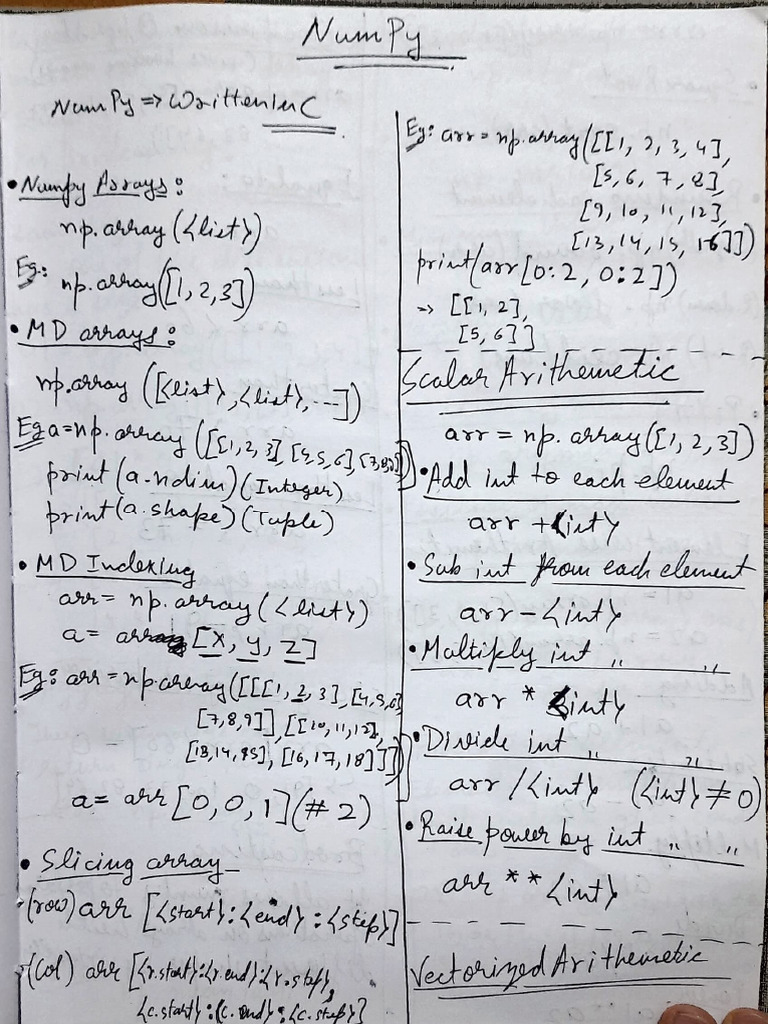 NumPy
NumPy => Written in C
• Numpy Arrays:
np.array(<list>)
Eg:
np.array([1,2,3])
• MD arrays:
np.array([<list>,<list>,---])
Eg a=np.array([[1,2,3],[4,5,6],[7,8,9]])
print(a.ndim)(Integer)
print(a.shape)(Tuple)
• MD Indexing
arr= np.array(<list>)
a= arr[x,y,z]
Eg: arr=np.array([[[1,2,3],[4,5,6]
[7,8,9]],[[10,11,12],
[13,14,15],[16,17,18]]])
a= arr[0,0,1](#2)
• Slicing array
(row)arr[<start>:<end>:<step>]
(col) arr[<r.start>:<r.end>:<r.step>,
<c.start>:<c.end>:<c.step>]
Eg: arr=np.array([[1,2,3,4],
[5,6,7,8],
[9,10,11,12],
[13,14,15,16]])
print(arr[0:2,0:2])
-> [[1,2],
[5,6]]
Scalar Arithemetic
arr=np.array([1,2,3])
• Add int to each element
arr+<int>
• Sub int from each element
arr-<int>
• Multiply int " "
arr * <int>
• Divide int " "
arr/<int> (<int>≠0)
• Raise power by int " "
arr**<int>
Vectorized Arithemetic